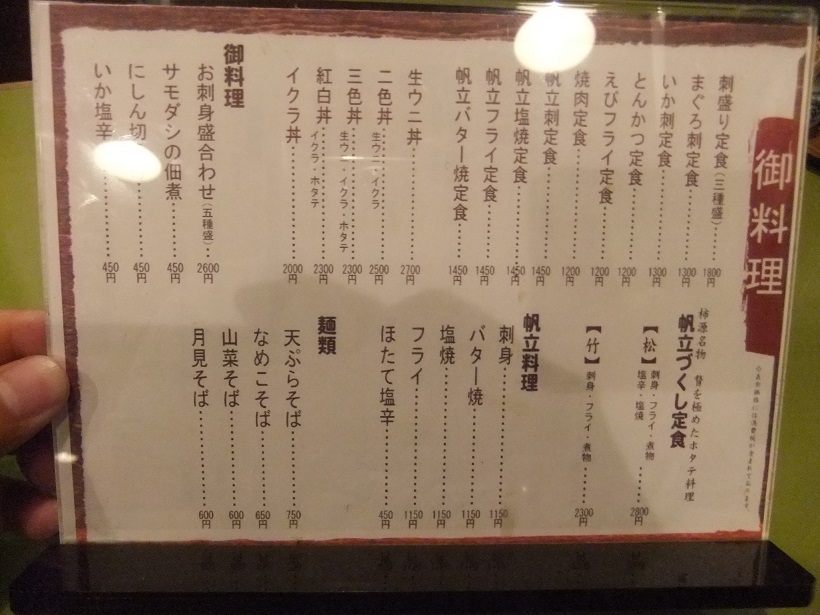 御料理
刺盛り定食(三種盛)……1800円
まぐろ刺定食……1300円
いか刺定食……1300円
とんかつ定食……1200円
えびフライ定食……1200円
焼肉定食……1200円
帆立刺定食……1450円
帆立塩焼定食……1450円
帆立フライ定食……1450円
帆立バター焼定食……1450円
生ウニ丼……2700円
二色丼 生ウニ・イクラ……2500円
三色丼 生ウニ・イクラ・ホタテ 2300円
紅白丼 イクラ・ホタテ……2300円
イクラ丼……2000円
御料理
お刺身盛合わせ(五種盛)…2600円
サモダシの佃煮……450円
にしん切……450円
いか塩辛……450円
柿源名物 贅を極めたホタテ料理
帆立づくし定食
【松】刺身・フライ・煮物 塩辛・塩焼……2800円
【竹】刺身・フライ・煮物……2300円
帆立料理
刺身……1150円
バター焼……1150円
塩焼……1150円
フライ……1150円
ほたて塩辛……450円
麺類
天ぷらそば……750円
なめこそば……650円
山菜そば……600円
月見そば……600円